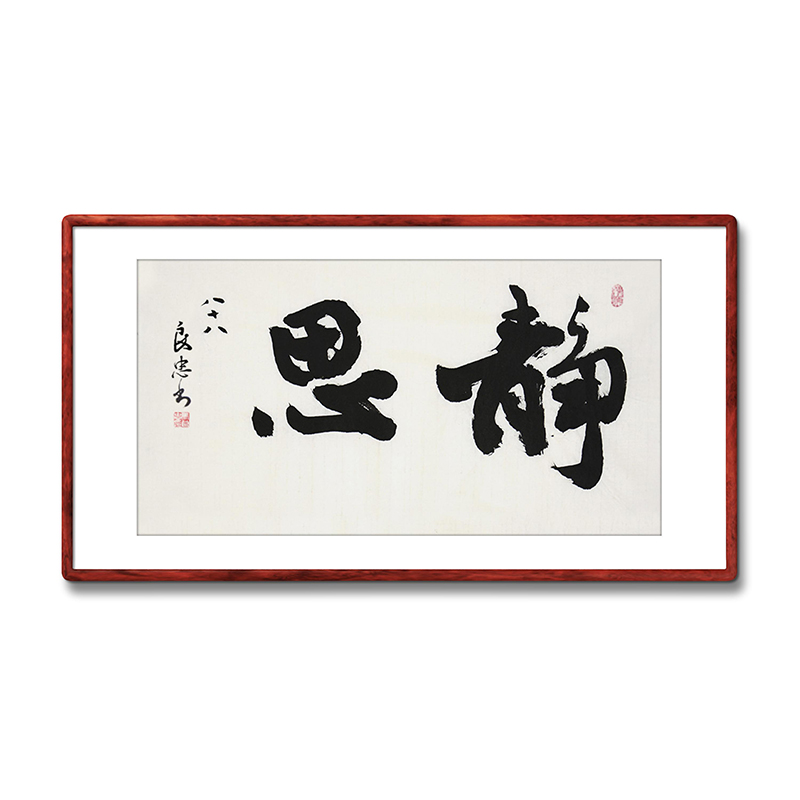 静思
八十八
良忠书